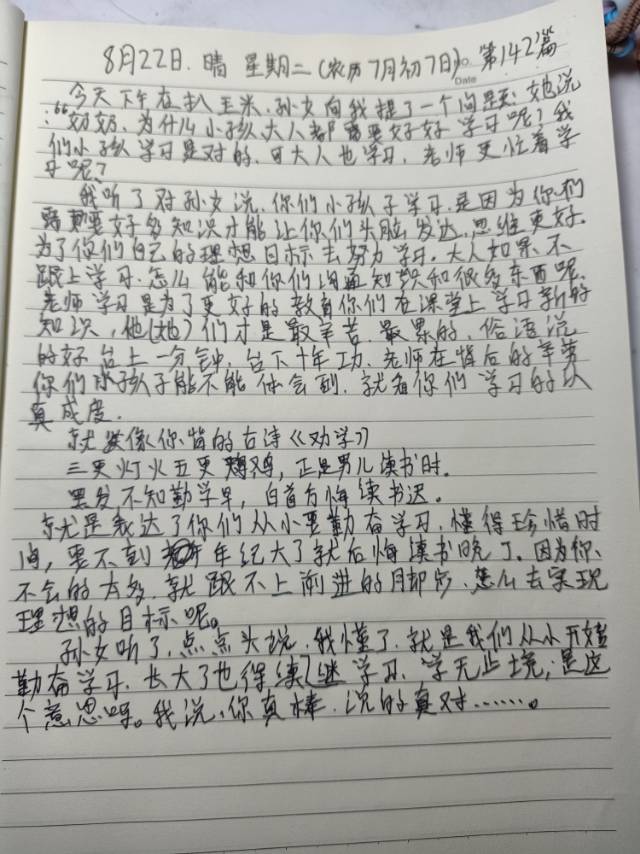 8月22日. 晴 星期二 (农历7月初7日) 第142篇
Date
今天下午在扒玉米. 孙女向我提了一个问题: 她说
:“奶奶. 为什么小孩. 大人都需要好好学习呢? 我
们小孩学习是对的. 可大人也学习. 老师更忙着学
习呢?
我听了对孙女说. 你们小孩子学习. 是因为你们
需要好多知识才能让你们头脑发达. 思维更好.
为了你们自己的理想目标去努力学习. 大人如果不
跟上学习. 怎么能和你们沟通知识和很多东西呢.
老师学习是为了更好的教育你们在课堂上学习新的
知识, 他(她)们才是最辛苦. 最累的. 俗语说
的好台上一分钟. 台下十年功. 老师在背后的辛劳
你们小孩子能不能体会到. 就看你们学习的认
真成度.
就像你背的古诗《劝学》
三更灯火五更鸡, 正是男儿读书时.
黑发不知勤学早, 白首方悔读书迟.
就是表达了你们从小要勤奋学习. 懂得珍惜时
间, 要不到年纪大了就后悔读书晚了. 因为你
不会的太多. 就跟不上前进的脚步. 怎么去实现
理想的目标呢。
孙女听了. 点点头说. 我懂了. 就是我们从小开始
勤奋学习. 长大了也得继续学习. 学无止境; 是这
个意思呀。我说, 你真棒. 说的真对……。